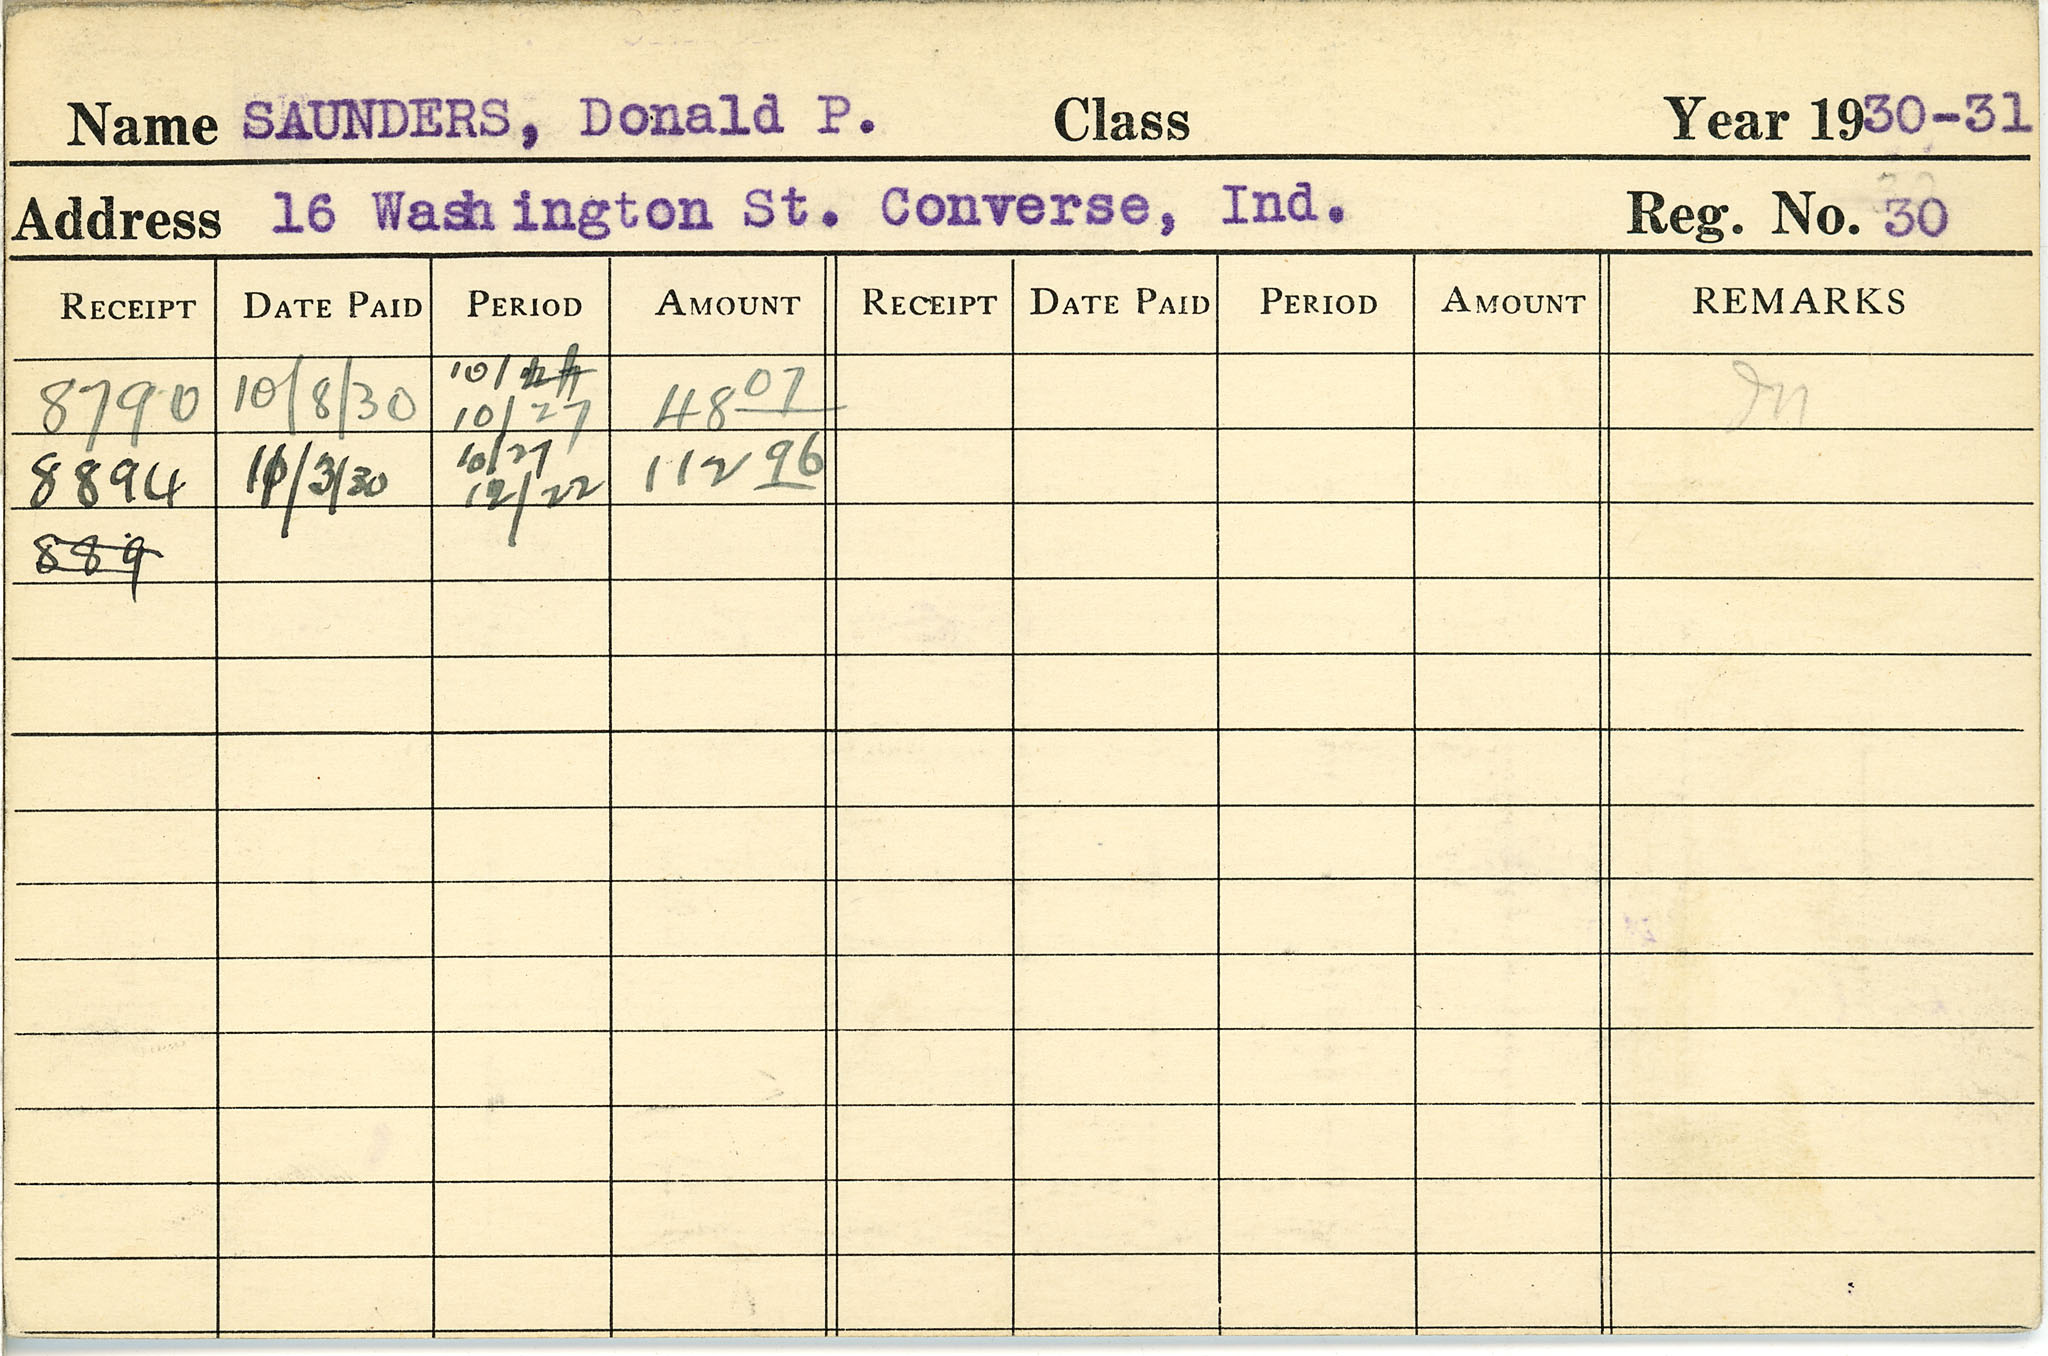 Name SAUNDERS, Donald P. Class Year 1930-31
Address 16 Washington St. Converse, Ind. Reg. No. 30
RECEIPT DATE PAID PERIOD AMOUNT RECEIPT DATE PAID PERIOD AMOUNT REMARKS
10/
8790 10/8/30 10/27 48 07
10/27
8894 11/3/30 12/22 112 96
889